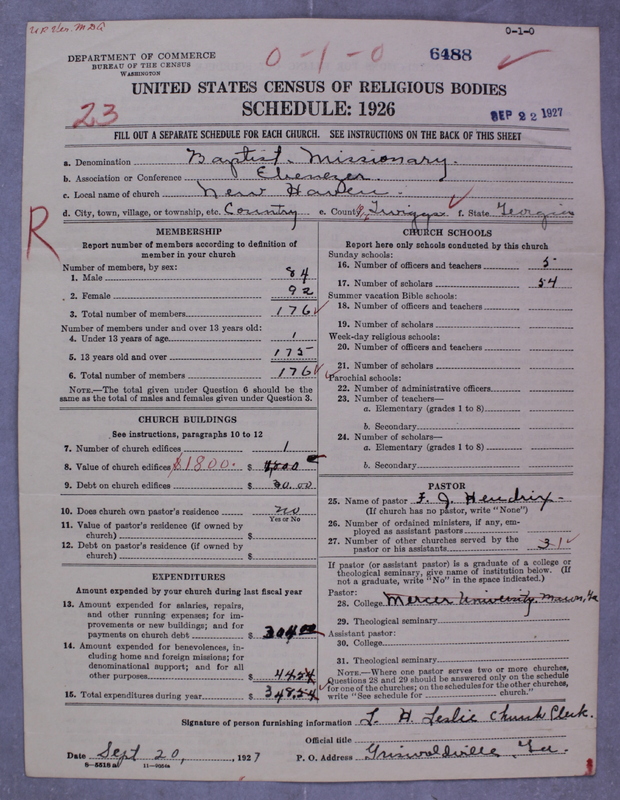 U.P. Ver. M.D.Q
0-1-0
DEPARTMENT OF COMMERCE
BUREAU OF THE CENSUS
WASHINGTON
0-1-0
6488
UNITED STATES CENSUS OF RELIGIOUS BODIES
SCHEDULE: 1926
23
SEP 22 1927
FILL OUT A SEPARATE SCHEDULE FOR EACH CHURCH. SEE INSTRUCTIONS ON THE BACK OF THIS SHEET
a. Denomination Baptist Missionary.
b. Association or Conference Ebenezer.
c. Local name of church New Haven.
d. City, town, village, or township, etc. Country e. County Twiggs f. State Georgia
R
MEMBERSHIP
Report number of members according to definition of
member in your church
Number of members, by sex:
1. Male 84
2. Female 92
3. Total number of members 176
Number of members under and over 13 years old:
4. Under 13 years of age 1
5. 13 years old and over 175
6. Total number of members 176
NOTE.—The total given under Question 6 should be
the same as the total of males and females given under Question 3.
CHURCH BUILDINGS
See instructions, paragraphs 10 to 12
7. Number of church edifices 1
8. Value of church edifices $1800. $
9. Debt on church edifices $ 30.00
10. Does church own pastor's residence? no
Yes or No
11. Value of pastor's residence (if owned by
church) $
12. Debt on pastor's residence (if owned by
church) $
EXPENDITURES
Amount expended by your church during last fiscal year
13. Amount expended for salaries, repairs,
and other running expenses; for im-
provements or new buildings; and for
payments on church debt $ 304.00
14. Amount expended for benevolences, in-
cluding home and foreign missions; for
denominational support; and for all
other purposes $ 44.54
15. Total expenditures during year $ 348.54
CHURCH SCHOOLS
Report here only schools conducted by this church
Sunday schools:
16. Number of officers and teachers 5
17. Number of scholars 54
Summer vacation Bible schools:
18. Number of officers and teachers
19. Number of scholars
Week-day religious schools:
20. Number of officers and teachers
21. Number of scholars
Parochial schools:
22. Number of administrative officers
23. Number of teachers—
a. Elementary (grades 1 to 8)
b. Secondary
24. Number of scholars—
a. Elementary (grades 1 to 8)
b. Secondary
PASTOR
25. Name of pastor F. J. Hendrix
(If church has no pastor, write "None")
26. Number of ordained ministers, if any, em-
ployed as assistant pastors
27. Number of other churches served by the
pastor or his assistants 3
If pastor (or assistant pastor) is a graduate of a college or
theological seminary, give name of institution below. (If
not a graduate, write "No" in the space indicated.)
Pastor:
28. College Mercer University, Macon, Ga
29. Theological seminary
Assistant pastor:
30. College
31. Theological seminary
NOTE.—Where one pastor serves two or more churches,
Questions 28 and 29 should be answered only on the schedule
for one of the churches; on the schedules for the other churches,
write "See schedule for church."
Signature of person furnishing information L. H. Leslie Church Clerk.
Official title
Date Sept 20, 1927 P. O. Address Griswoldville, Ga.
8-5518a 11-9364a